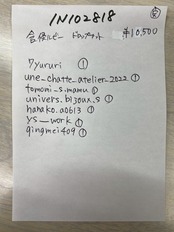 1N102818
合成ルビー ドロップカット ¥10,500
7yururi ①
une_chatte_atelier_2022 ①
tomoni_s.mamu ①
univers.bijoux.s ①
hanako.a0613 ①
ys__work ①
qingmei409 ①